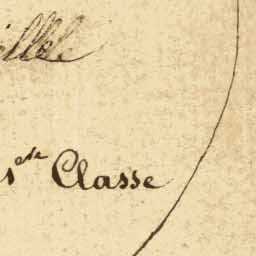 ille
1ere Classe